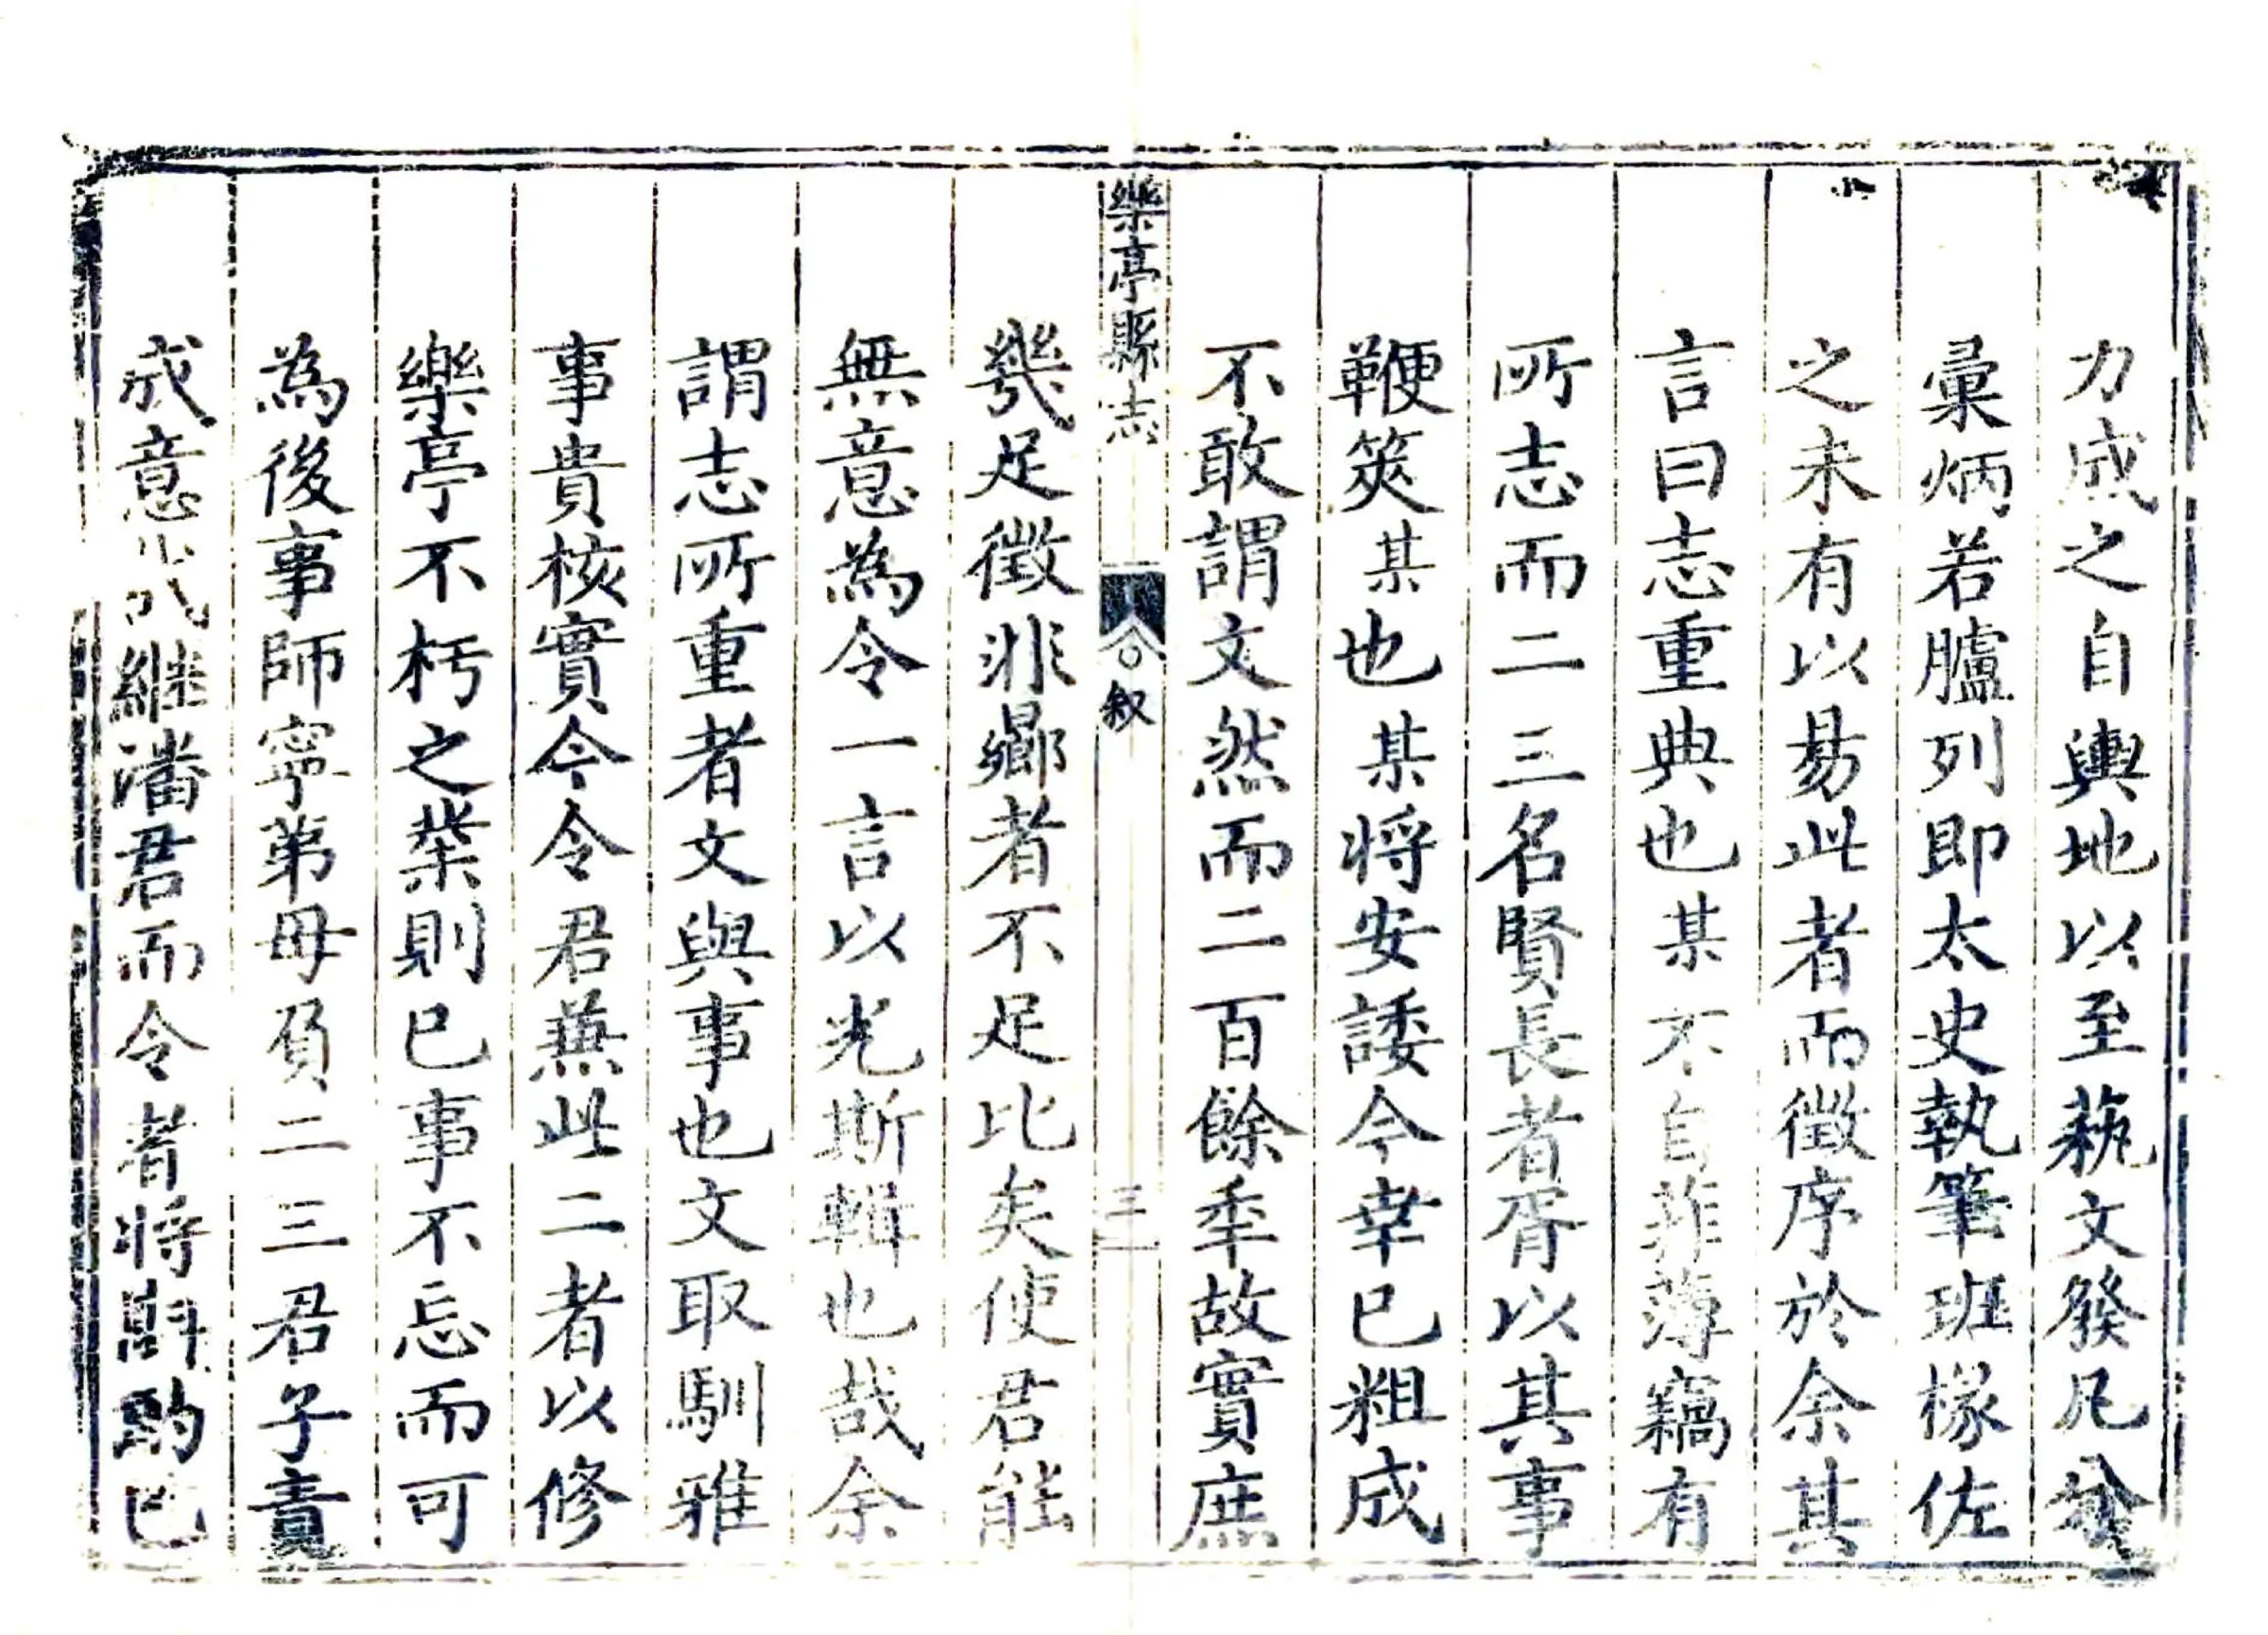 力成之自輿地以至蓺文發凡
彙炳若臚列即太史執筆班椽佐
之未有以易此者而徵序於余其
言曰志重典也某不自菲薄竊有
所志而二三名賢長者胥以其事
鞭筴某也某将安諉今幸已粗成
不敢謂文然而二百餘秊故實庶
樂亭縣志
叙
三
幾足徵非鄉者不足比矣使君能
無意為令一言以光斯輯也哉余
謂志所重者文與事也文取馴雅
事貴核實今令君蕪此二者以修
樂亭不朽之業則已事不忘而可
為後事師寧第毋負二三君子責
成意継潘君而令者将斟酌已